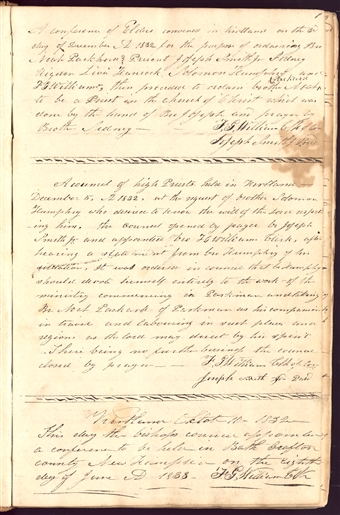 A conference of Elders convened in Kirtland on the 3
day of December AD 1832 for the purpose of ordaining Bro
Noah Packard Present Joseph Smith Jr Sidney
Rigdon Levi Hancock Solomon Humphrey and
Packard
F G Williams then proceeded to ordain brother Noah
to be a Priest in the church of Christ which was
done by the hand of Bro Joseph and prayer by
Brother Sidney — F. G. Williams Clk
Joseph Smith
A council of high Priests held in Kirtland
December 5, AD 1832. at the request of brother Solomon
Humphrey who desired to know the will of the Lord respect
ing him, the council opened by prayer by Joseph
Smith Jr and appointed Bro F G Williams Clerk, after
hearing a statement from Bro Humphrey of his
It was ordered in council that Bro Humphrey
should devote himself entirely to the work of the
ministry commencing in Parkman and taking
Br. Noah Packard of Parkman as his companion
in travel and labouring in such places and
regions as the Lord may direct by his spirit
There being no further business the council
closed by prayer — F. G Williams Clk
Joseph Smith Jr
Kirtland 10 1832
This day the bishops council appointed
a conference to be held in Bath Grafton
county New Hampshire on the eighth
day of June AD 1833 F. G. Williams Clk